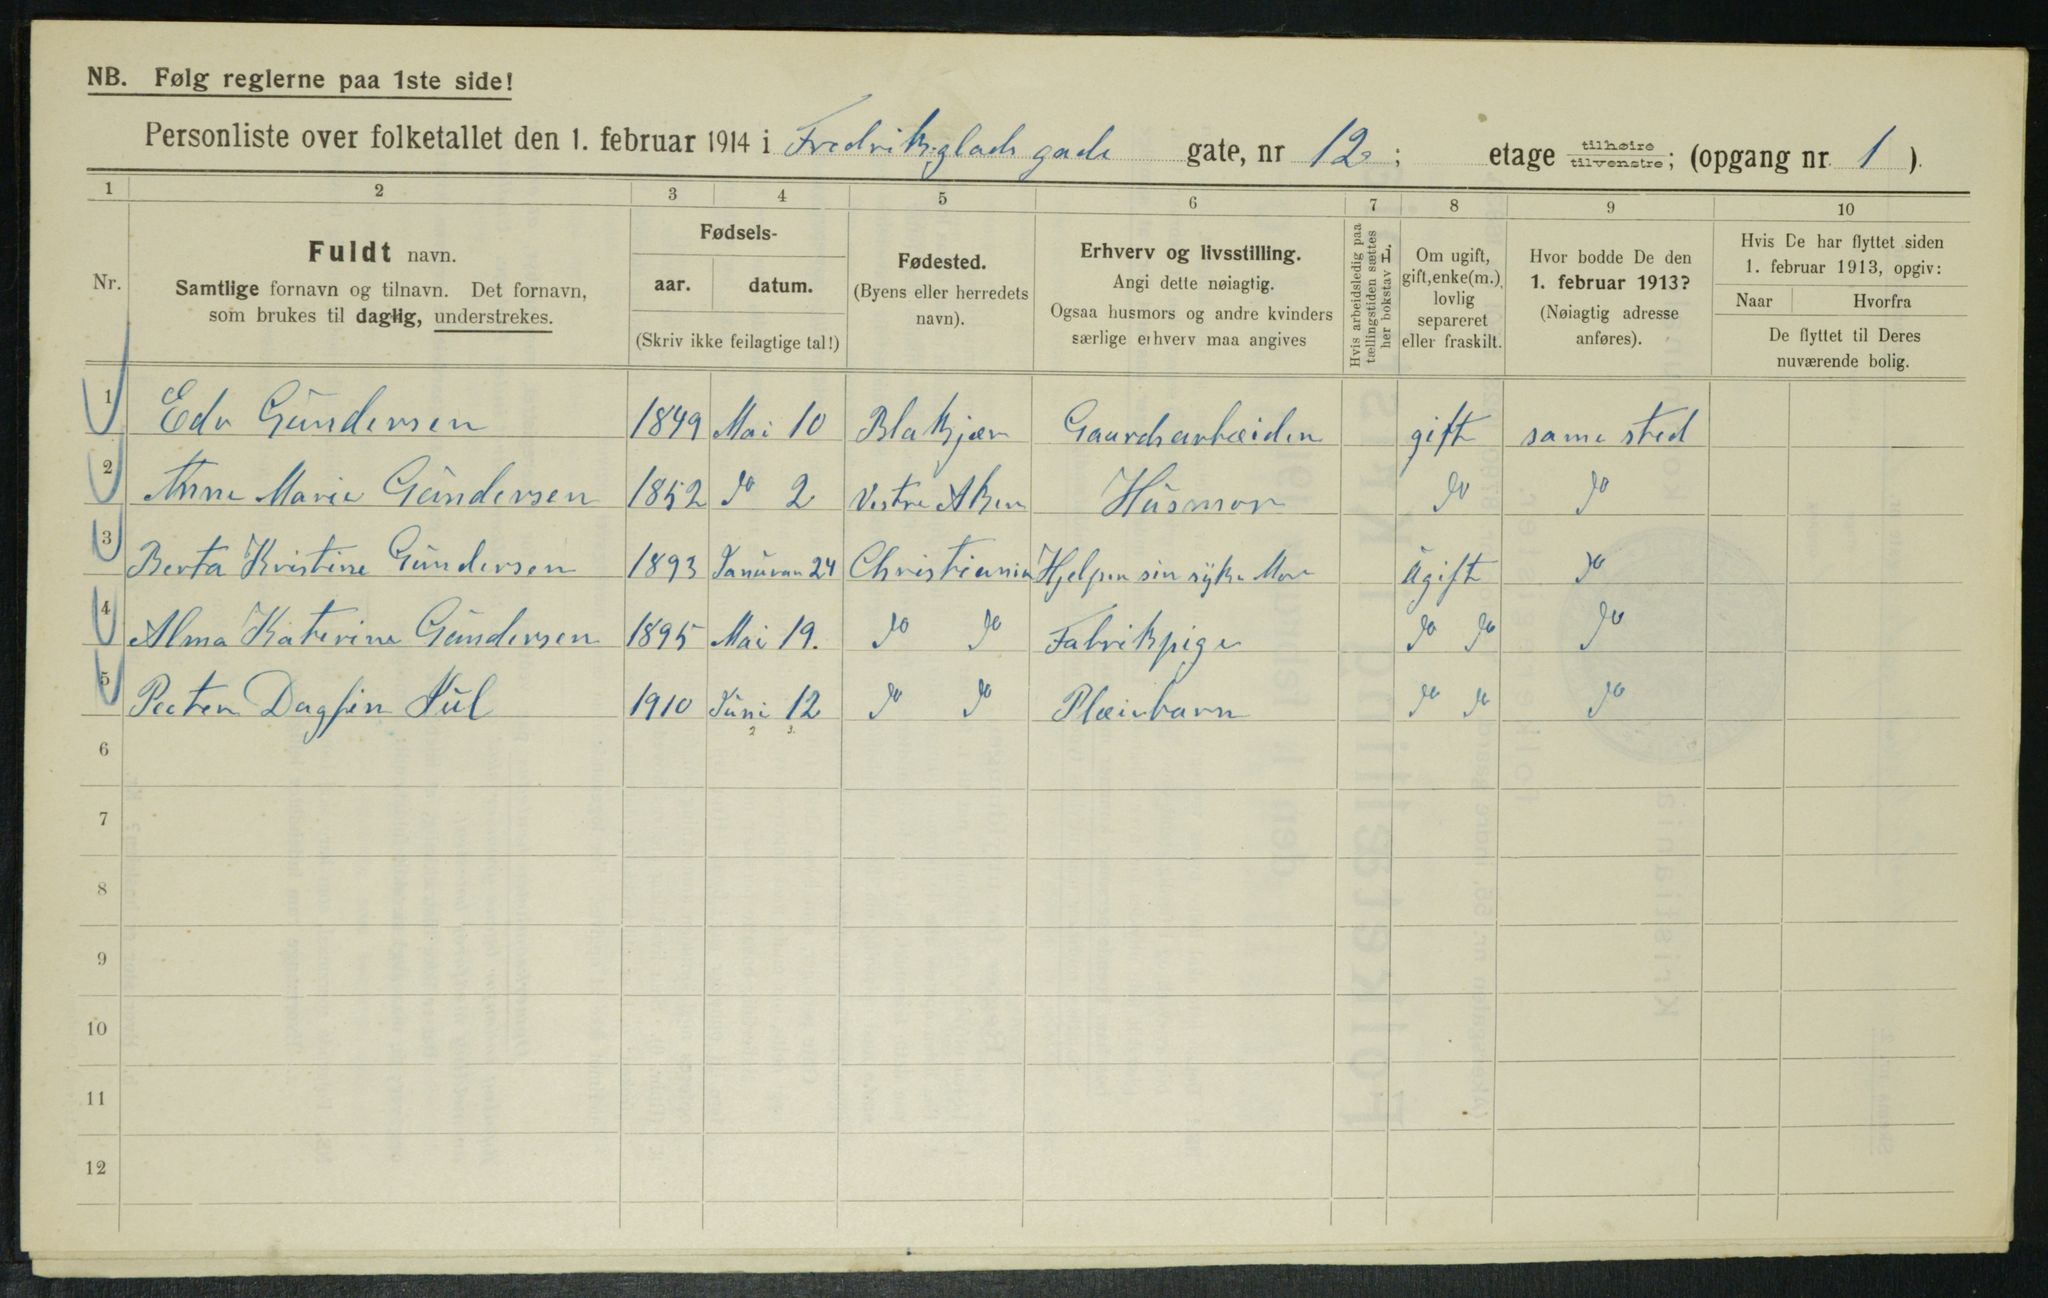 NB. Følg reglerne paa 1ste side!
Personliste over folketallet den 1. februar 1914 i Fredriksglads gade gate, nr 12 ; etage tilhøire tilvenstre; (opgang nr. 1 ).
1 2 3 4 5 6 7 8 9 10
Nr.
Fuldt navn.
Samtlige fornavn og tilnavn. Det fornavn,
som brukes til daglig, understrekes.
Fødsels-
aar. datum.
(Skriv ikke feilagtige tal!)
Fødested.
(Byens eller herredets
navn).
Erhverv og livsstilling.
Angi dette nøiagtig.
Ogsaa husmors og andre kvinders
særlige erhverv maa angives
Hvis arbeidsledig paa
tællingstiden sættes
her bokstav L.
Om ugift,
gift, enke(m.),
lovlig
separeret
eller fraskilt.
Hvor bodde De den
1. februar 1913?
(Nøiagtig adresse
anføres).
Hvis De har flyttet siden
1. februar 1913, opgiv:
Naar Hvorfra
De flyttet til Deres
nuværende bolig.
1 Edv Gundersen 1849 Mai 10 Blakjær Gaardsarbeider gift same sted
2 Anne Marie Gundersen 1852 do 2 Vestre Aker Husmor do do
3 Berta Kristine Gundersen 1893 Januar 24 Christiania Hjelper sin syke Mor Ugift do
4 Alma Katerine Gundersen 1895 Mai 19. do do Fabrikpige do do do
5 Peeter Dagfin Jul 1910 Juni 12 do do Pleiebarn do do do
6
7
8
9
10
11
12